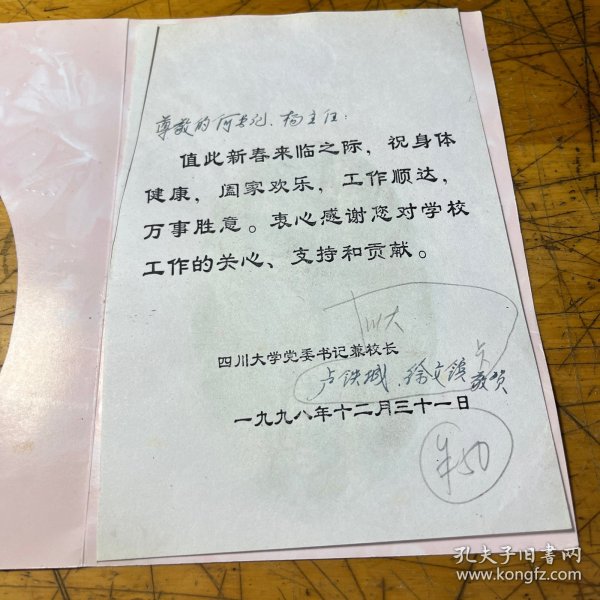 尊敬的何书记、杨主任：
值此新春来临之际，祝身体
健康，阖家欢乐，工作顺达，
万事胜意。衷心感谢您对学校
工作的关心、支持和贡献。
川大
四川大学党委书记兼校长
卢铁城、徐文镇 敬贺
一九九八年十二月三十一日
年50
孔夫子旧书网
www.kongfz.com